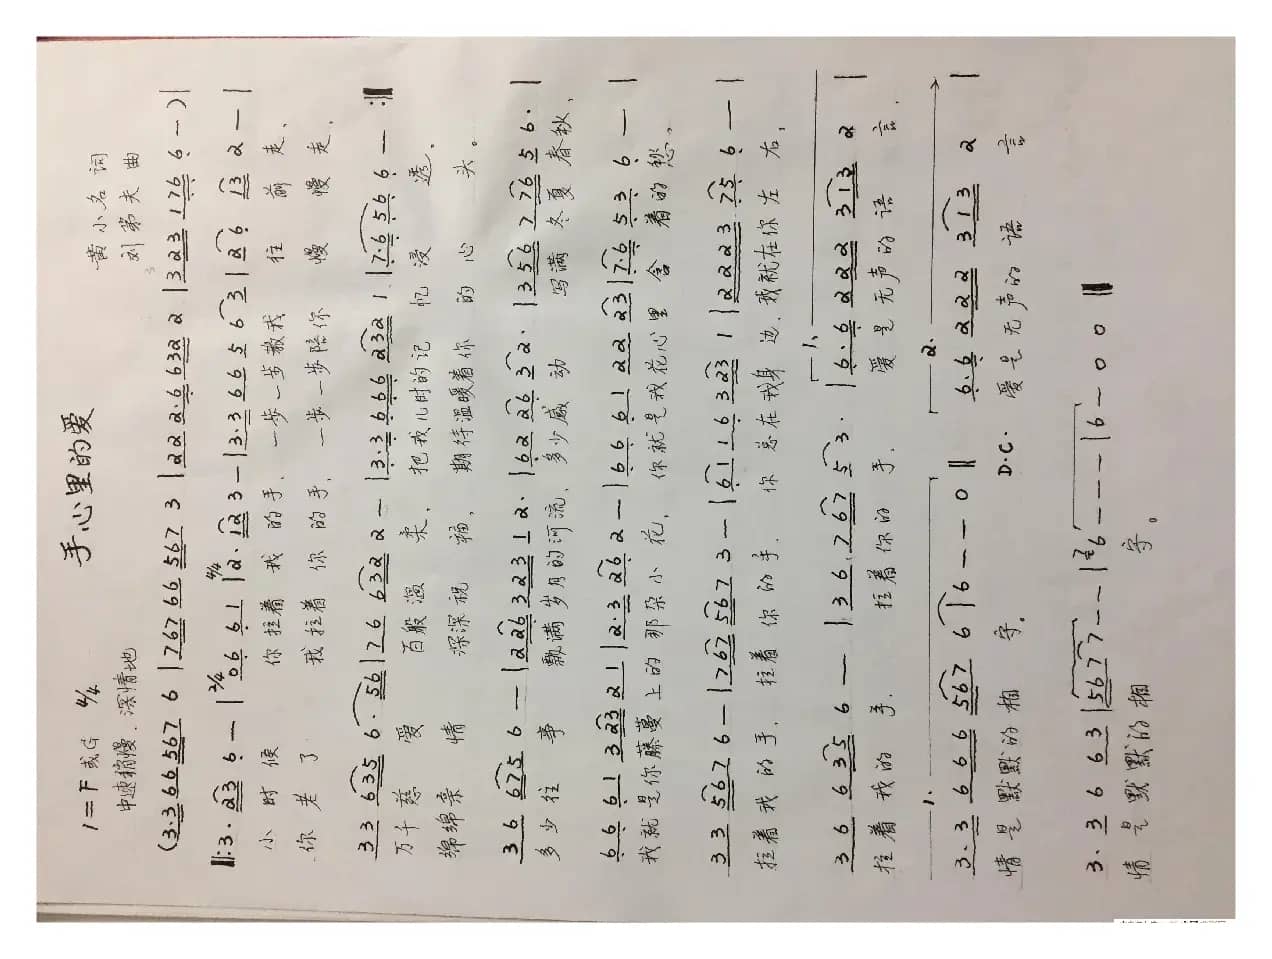 手心里的爱
1=F或G 4/4
中速稍慢、深情地
黄小名 词
刘第夫 曲
(3·3 6 6 5 6 7 6 | 7 6 7 6 6 5 6 7 3 | 2 2 2·6 6 3 2 2 | 3 2 3 1 7 6 6 —) |
‖: 3· 2 3 6 — | 2/4 0 6 6 1 | 4/4 2· 1 2 3 — | 3·3 6 6 5 6 3 | 2 6 1 3 2 — |
小时候 你拉着我的手、一步一步教我往前走、
你老了 我拉着你的手、一步一步陪你慢慢走。
3 3 6 3 5 6· 5 6 | 7 6 6 3 2 2 — | 3·3 6 6 6 2 3 2 1 | 7·6 5 6 6 — :‖
万千慈爱 百般温柔、把我儿时的记忆浸透。
绵绵亲情 深深祝福、期待温暖着你的心头。
3 6 6 7 5 6 — | 2 2 6 3 2 3 1 2· | 6 2 2 6 3 2· | 3 5 6 7 7 6 5 6· |
多少往事 飘满岁月的河流、多少感动 写满冬夏春秋、
6 6 6 1 3 2 3 2 1 | 2·3 2 6 2 — | 6 6 6 1 2 2 2 3 | 7·6 5 3 6 — |
我就是你藤蔓上的那朵小花、你就是我花心里含着的愁。
3 3 5 6 7 6 — | 7 6 7 5 6 7 3 — | 6 1 1 6 3 2 3 1 | 2 2 2 2 3 7 5 6 — |
拉着我的手、拉着你的手、你总在我身边、我就在你左右、
3 6 6 3 5 6 — | 3 6 7 6 7 5 3· | 1. 6·6 2 2 2 2 3 1 3 2 |
拉着我的手、拉着你的手、爱是无声的语言、
1. 3·3 6 6 6 5 6 7 6 | 6 — — 0 ‖ 2. 6·6 2 2 2 2 3 1 3 2 |
情是默默的相守。 D.C. 爱是无声的语言
3· 3 6 6 3 | 5 6 7 7 — — | 2/4 6 — — — | 6 — 0 0 ‖
情是默默的相守。